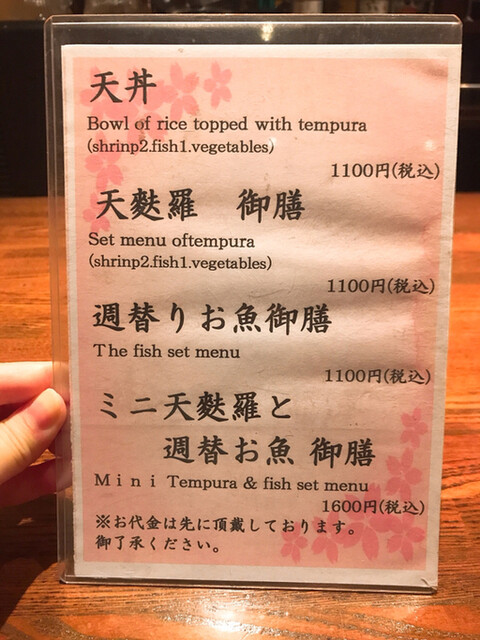 天丼
Bowl of rice topped with tempura
(shrinp2.fish1.vegetables)
1100円(税込)
天麩羅　御膳
Set menu oftempura
(shrinp2.fish1.vegetables)
1100円(税込)
週替りお魚御膳
The fish set menu
1100円(税込)
ミニ天麩羅と
週替お魚 御膳
Mini Tempura & fish set menu
1600円(税込)
※お代金は先に頂戴しております。
御了承ください。